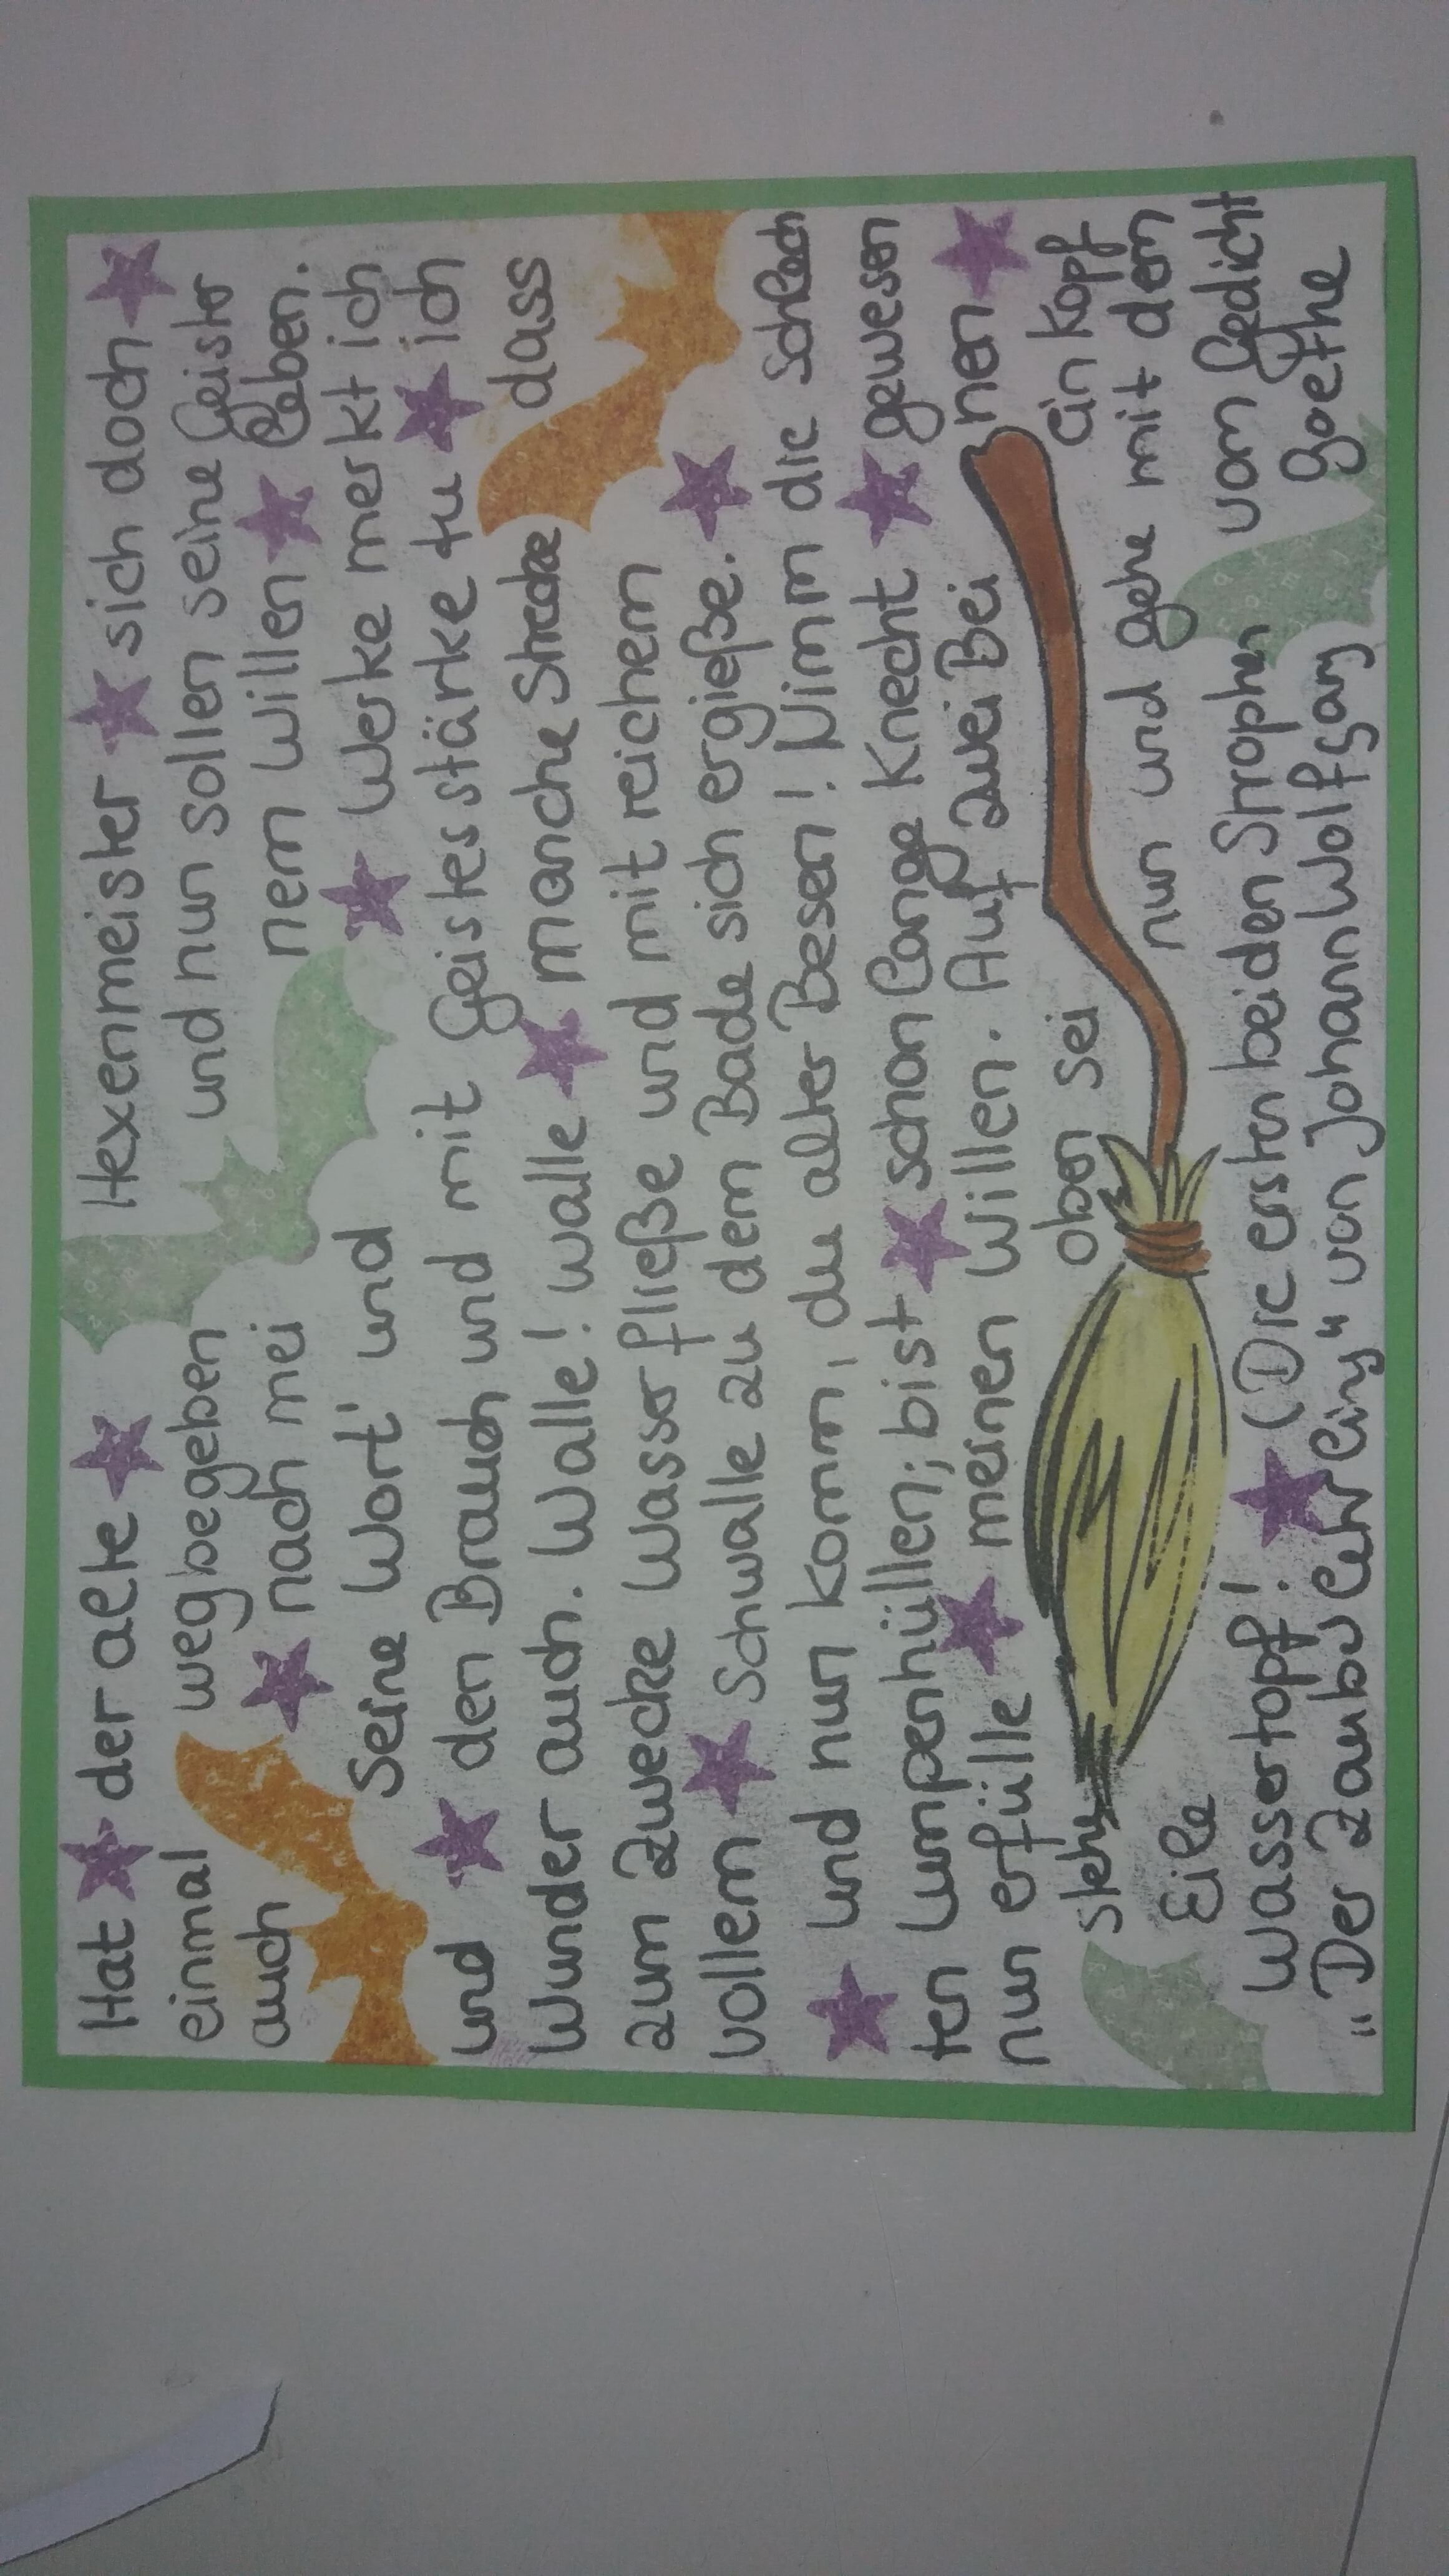 Hat der alte Hexenmeister sich doch
einmal wegbegeben und nun sollen seine Geister
auch nach mei nem Willen Leben.
Seine Wort' und Werke merkt ich
und den Brauch und mit Geistesstärke tu ich
Wunder auch. Walle! walle manche Strecke dass
zum Zwecke Wasser fließe und mit reichem
vollem Schwalle zu dem Bade sich ergieße.
und nun komm, du alter Besen! Nimm die schlech
ten Lumpenhüllen; bist schon lange Knecht gewesen
nun erfülle meinen Willen. Auf zwei Bei nen
stehe oben sei ein Kopf
Eile nun und gehe mit dem
Wassertopf! (Die ersten beiden Strophen vom Gedicht
"Der Zauberlehrling" von Johann Wolfgang Goethe